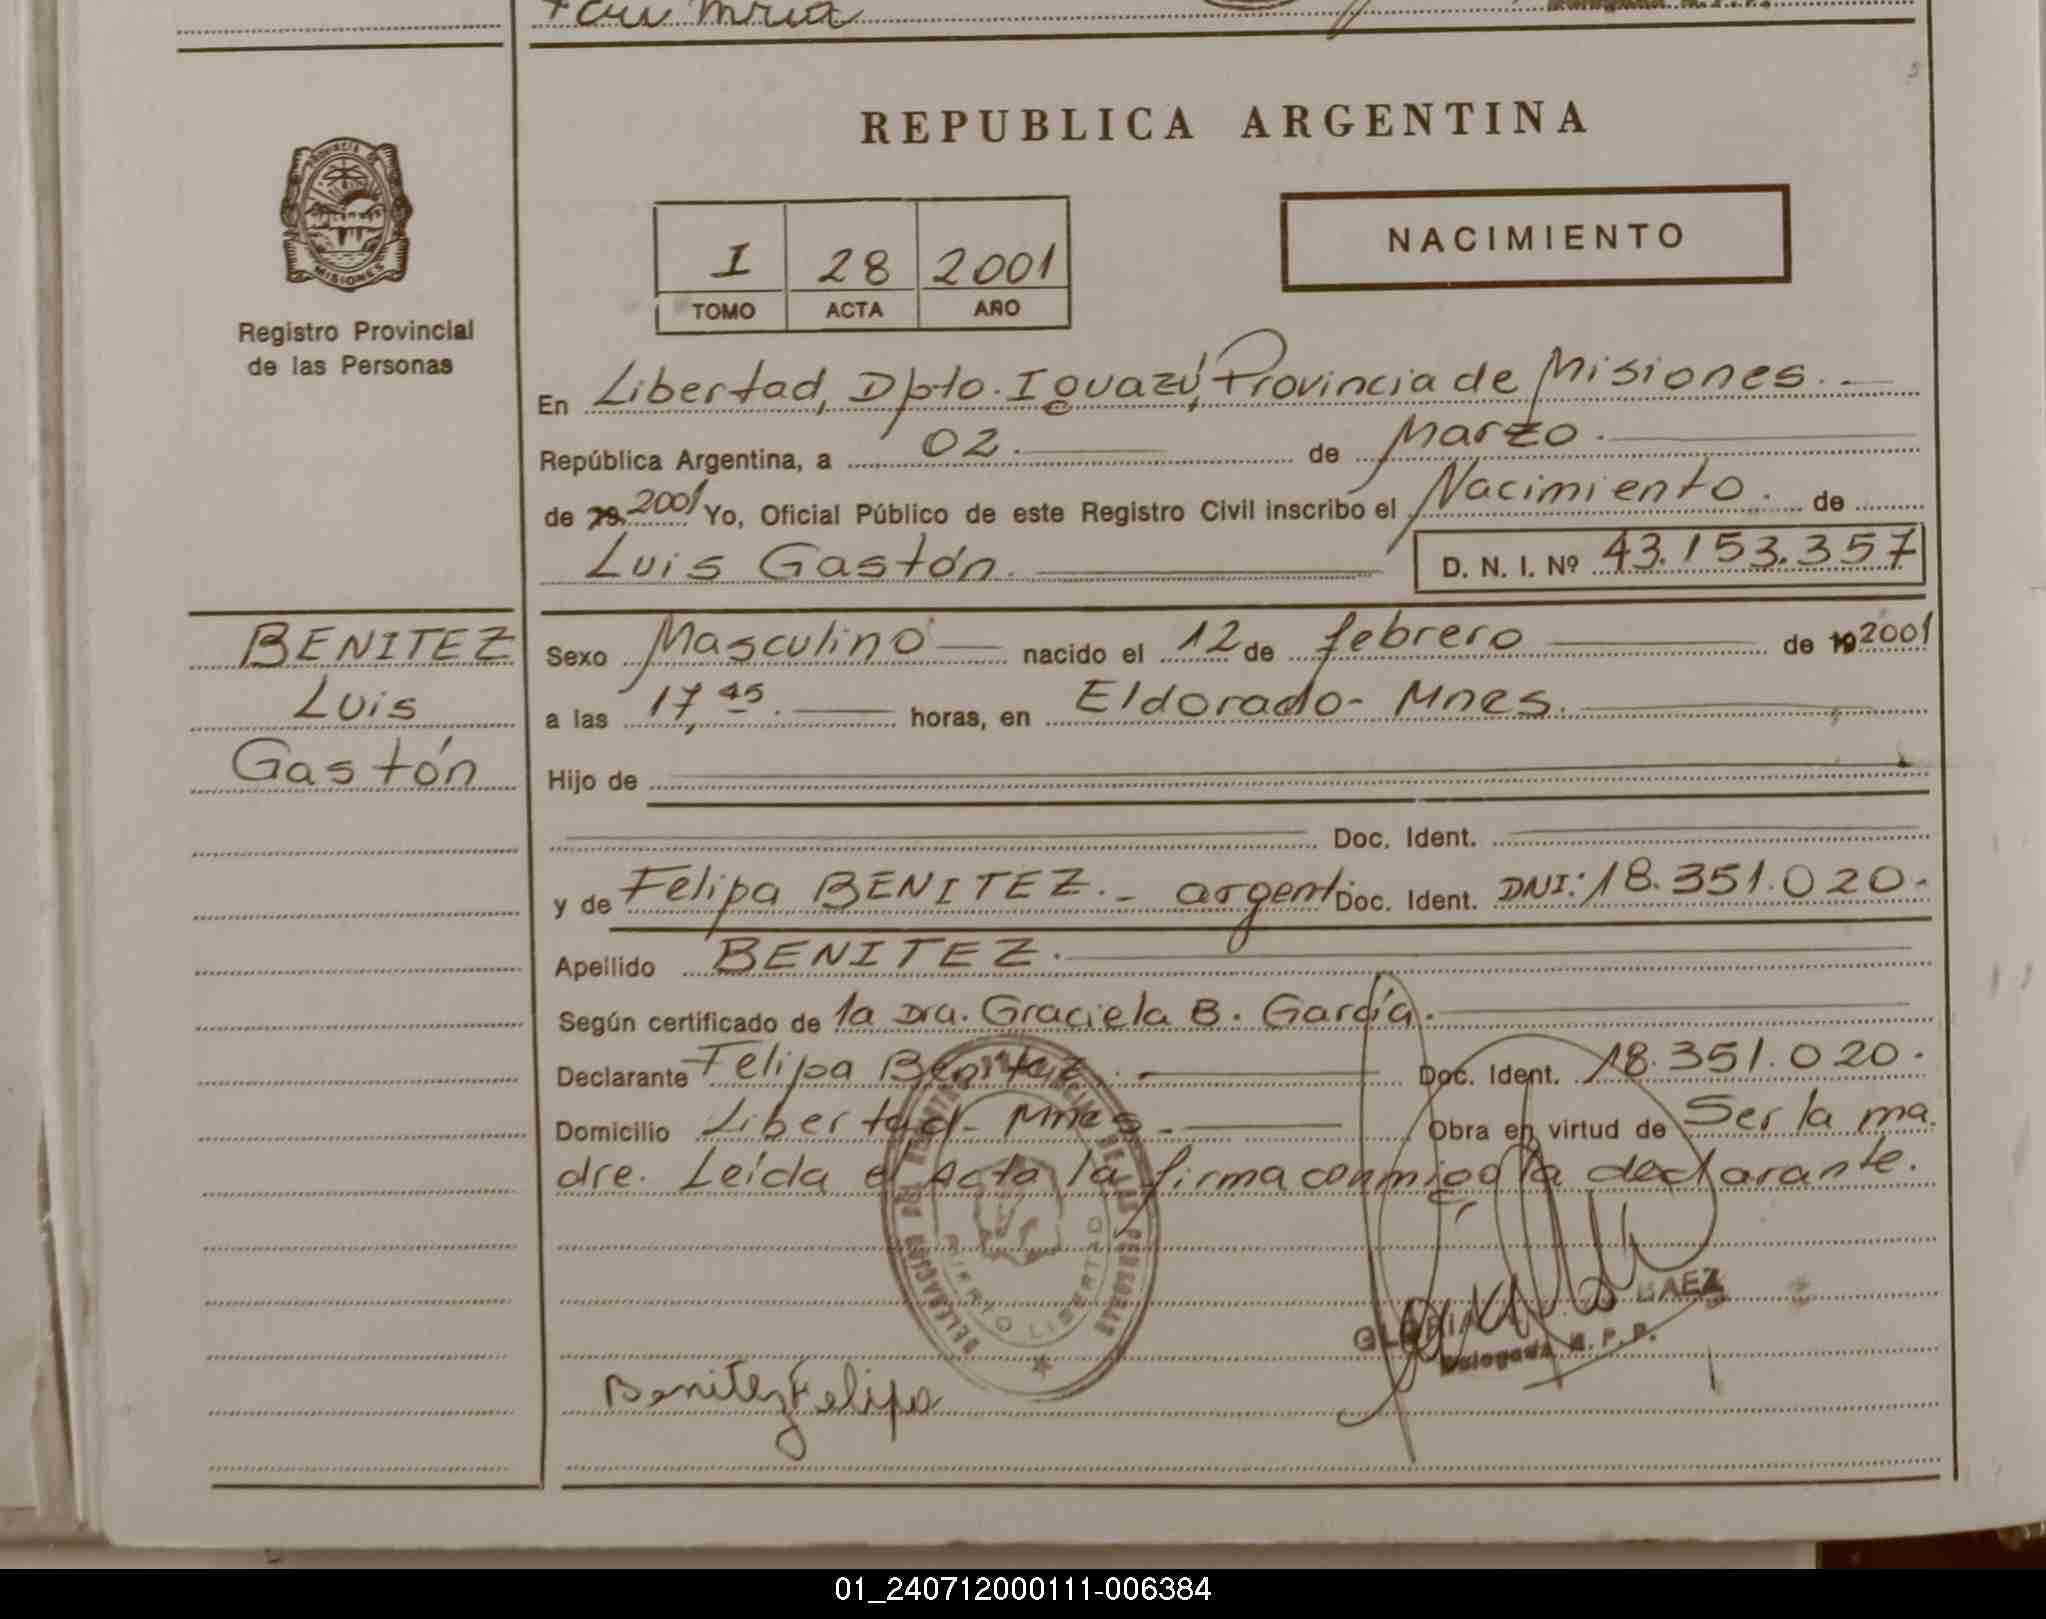 REPUBLICA ARGENTINA
PROVINCIA DE
MISIONES
Registro Provincial
de las Personas
I 28 2001
TOMO ACTA AÑO
NACIMIENTO
En Libertad, Dpto. Iguazú, Provincia de Misiones.-
República Argentina, a 02. de Marzo.
de 19 2001 Yo, Oficial Público de este Registro Civil inscribo el Nacimiento. de
Luis Gastón. D. N. I. Nº 43.153.357
BENITEZ
Luis
Gastón
Sexo Masculino nacido el 12 de febrero de 19 2001
a las 17,45. horas, en Eldorado- Mnes.
Hijo de
Doc. Ident.
y de Felipa BENITEZ.- argent. Doc. Ident. DNI: 18.351.020.
Apellido BENITEZ.
Según certificado de la Dra. Graciela B. García.
Declarante Felipa Benitez. Doc. Ident. 18.351.020.
Domicilio Libertad- Mnes. Obra en virtud de Ser la ma.
dre. Leída el Acta la firma conmigo la declarante.
DE LAS PERSONAS
PUERTO LIBERTAD
GLORIA BAEZ
Delegada R. P. P.
Benitez Felipa
01_240712000111-006384